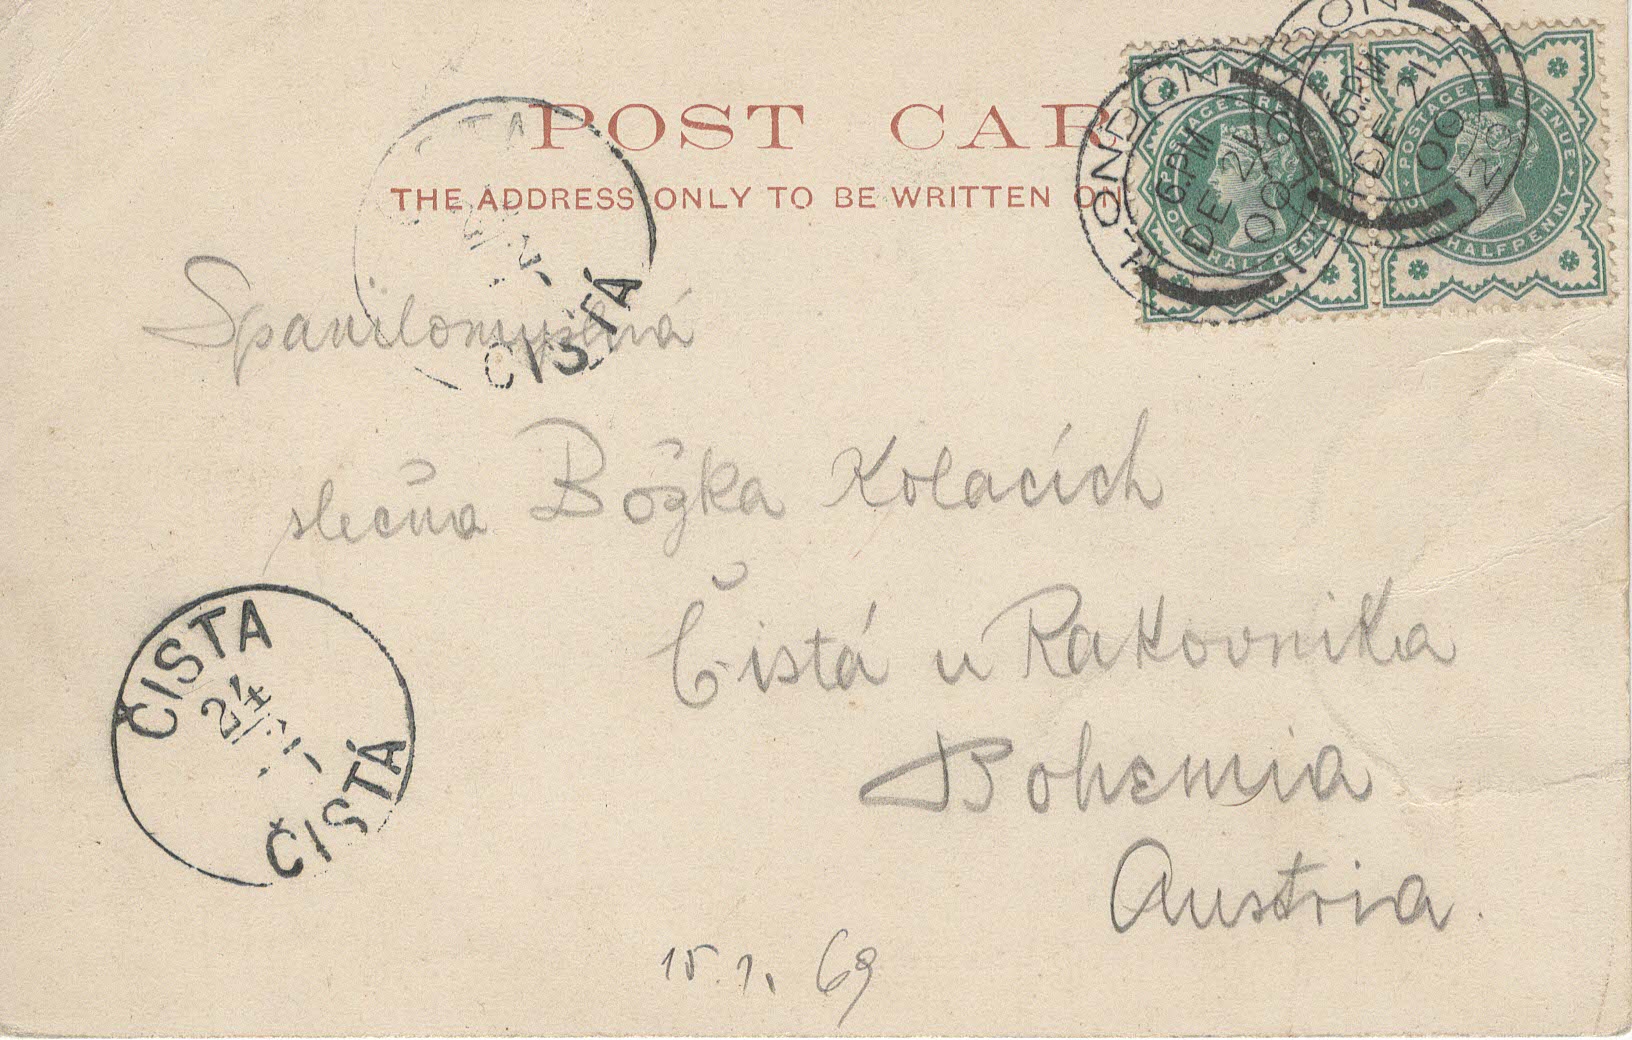 POST CAR
THE ADDRESS ONLY TO BE WRITTEN
LONDON
6. PM
DE 21
00
LONDON
6. PM
DE 21
00
POSTAGE & REVENUE
HALFPENNY
POSTAGE & REVENUE
HALFPENNY
ČISTÁ
Spanilomyslná
slečna Božka Kolacích
Čistá u Rakovnika
Bohemia
Austria.
ČISTA
24
ČISTÁ
15. 1. 69